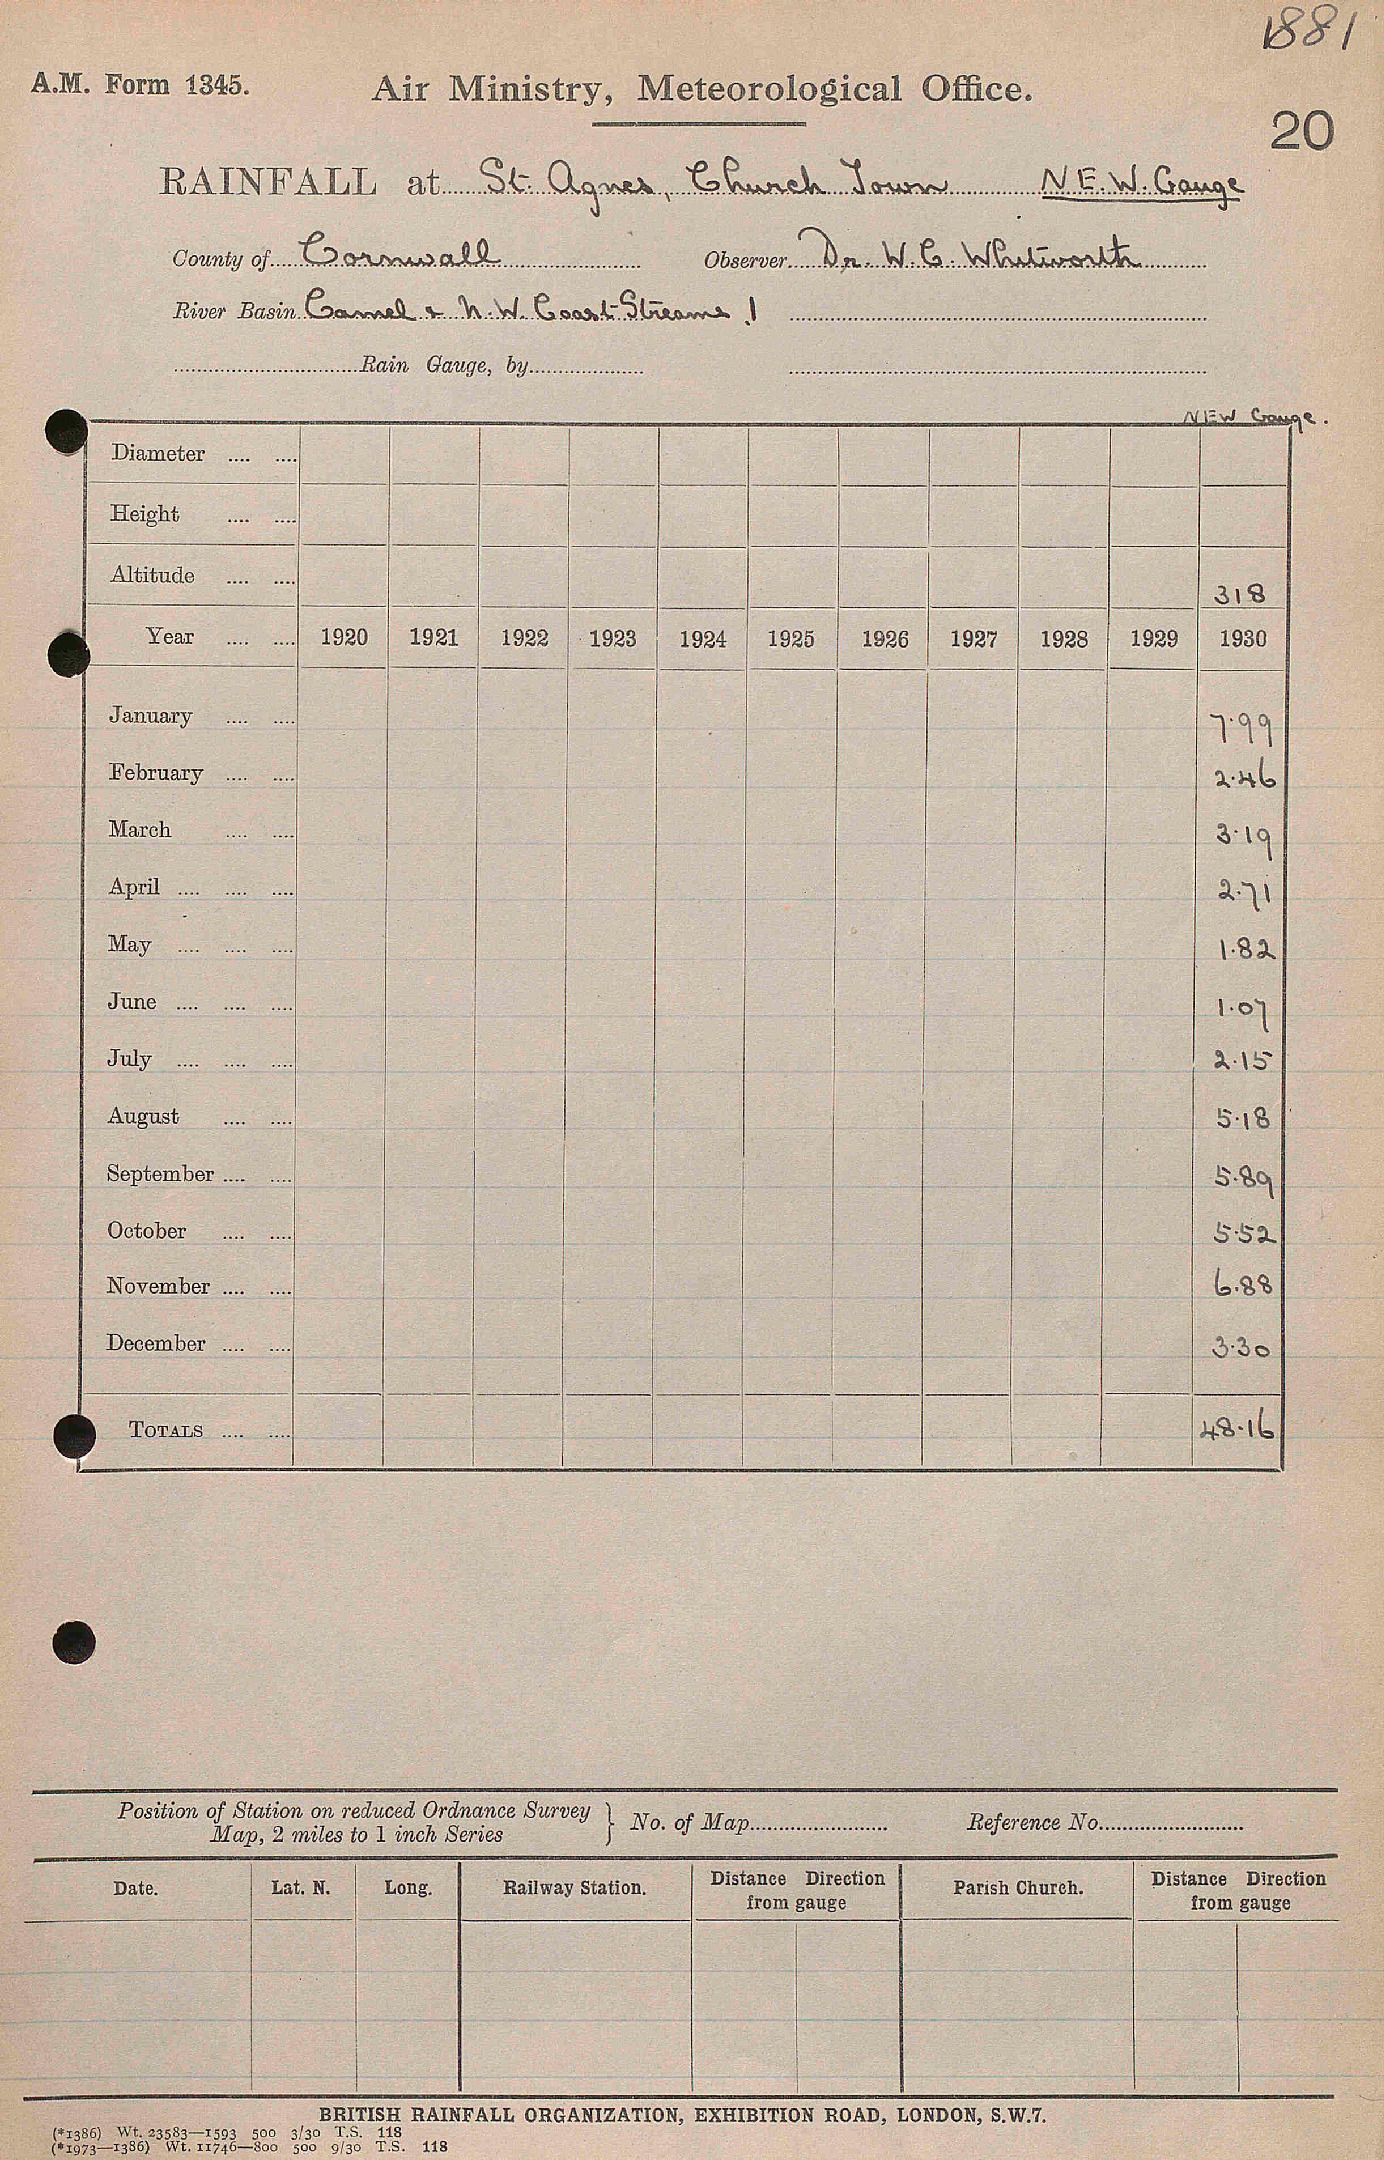 1881
A.M. Form 1345.
Air Ministry, Meteorological Office.
20
RAINFALL at St. Agnes, Church Town NEW. Gauge
County of Cornwall Observer Dr. W. C. Whitworth
River Basin Camel & N.W. Coast Streams 1
Rain Gauge, by
NEW Gauge.
Diameter .... ....
Height .... ....
Altitude .... .... 318
Year .... .... 1920 1921 1922 1923 1924 1925 1926 1927 1928 1929 1930
January .... .... 7.99
February .... .... 2.46
March .... .... 3.19
April .... .... .... 2.71
May .... .... .... 1.82
June .... .... .... 1.07
July .... .... .... 2.15
August .... .... 5.18
September .... .... 5.89
October .... .... 5.52
November .... .... 6.88
December .... .... 3.30
TOTALS .... .... 48.16
Position of Station on reduced Ordnance Survey
Map, 2 miles to 1 inch Series } No. of Map Reference No.
Date. Lat. N. Long. Railway Station. Distance Direction from gauge Parish Church. Distance Direction from gauge
BRITISH RAINFALL ORGANIZATION, EXHIBITION ROAD, LONDON, S.W.7.
(*1386) Wt. 23583—1593 500 3/30 T.S. 118
(*1973—1386) Wt. 11746—800 500 9/30 T.S. 118